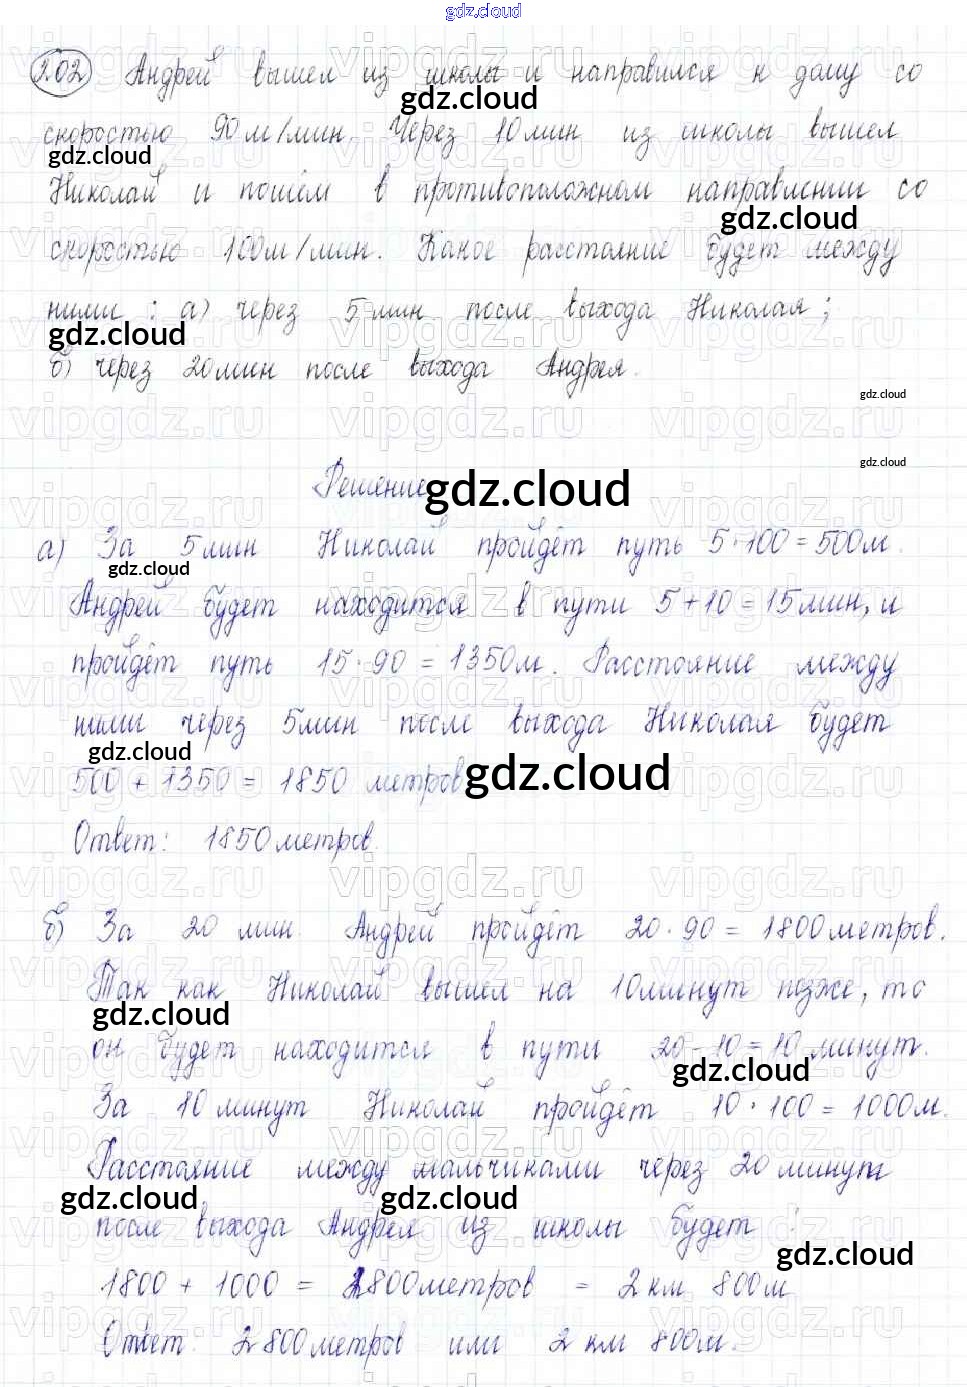 gdz.cloud
202 Андрей вышел из школы и направился к дому со
скоростью 90 м/мин. Через 10 мин из школы вышел
Николай и пошёл в противоположном направлении со
скоростью 100 м/мин. Какое расстояние будет между
ними : а) через 5 мин после выхода Николая;
б) через 20 мин после выхода Андрея.
Решение
а) За 5 мин Николай пройдёт путь 5·100 = 500 м.
Андрей будет находится в пути 5+10 = 15 мин, и
пройдёт путь 15·90 = 1350 м. Расстояние между
ними через 5 мин после выхода Николая будет
500 + 1350 = 1850 метров
Ответ: 1850 метров.
б) За 20 мин. Андрей пройдёт 20·90 = 1800 метров.
Так как Николай вышел на 10 минут позже, то
он будет находится в пути 20-10 = 10 минут.
За 10 минут Николай пройдёт 10·100 = 1000 м.
Расстояние между мальчиками через 20 минут
после выхода Андрея из школы будет :
1800 + 1000 = 2800 метров = 2 км 800 м
Ответ. 2800 метров или 2 км 800 м.